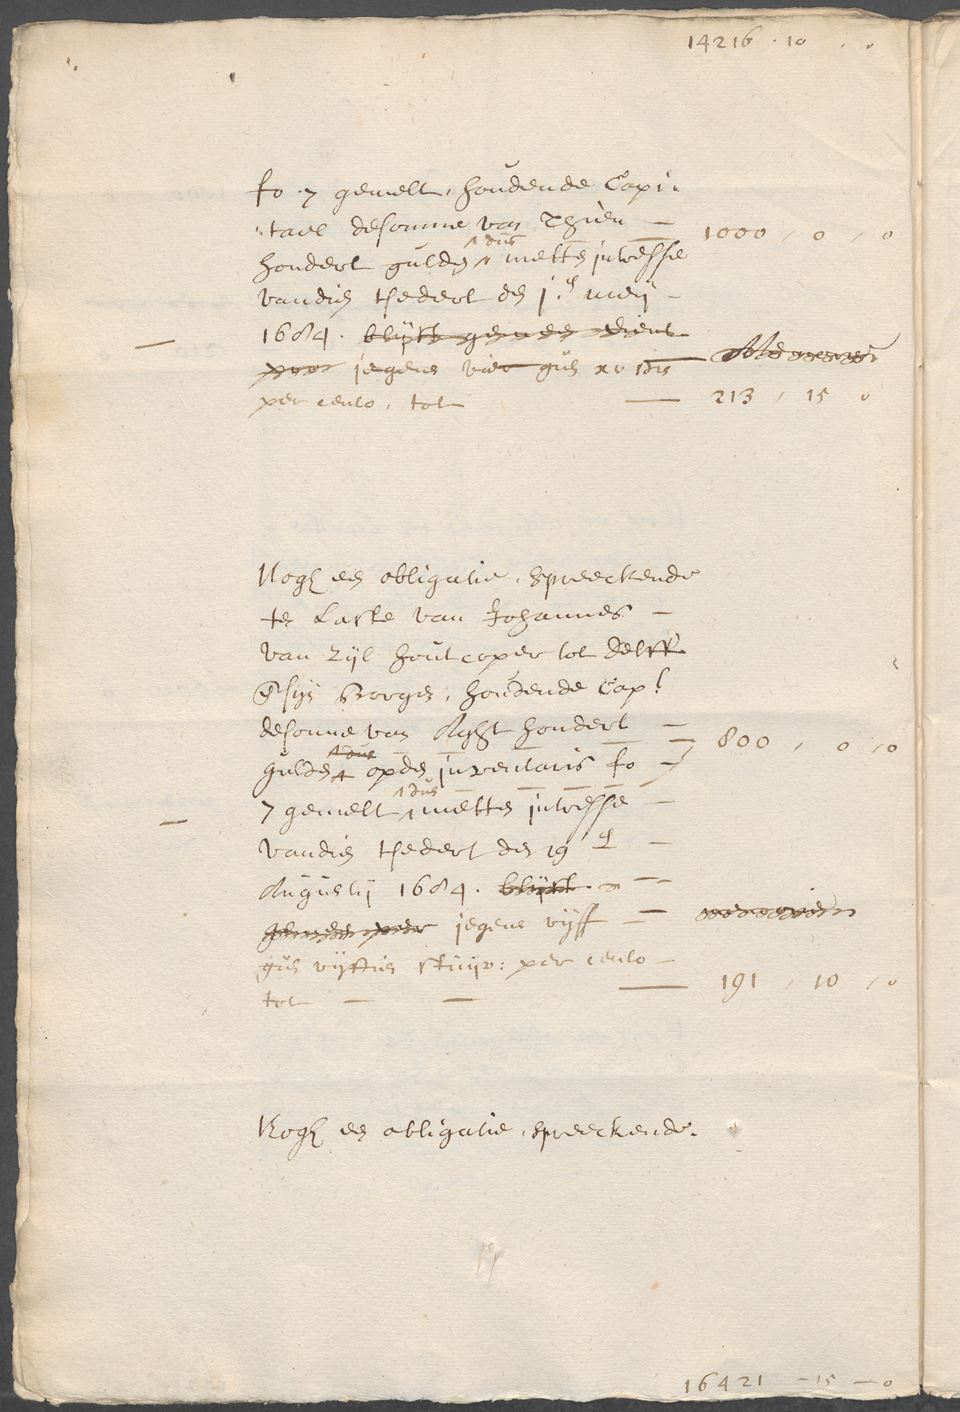 14216 . 10 . .
fo . 7 gemelt, houdende Capi„
„tael de somme van Thien — 1000 , 0 , 0
hondert gulden, mette intresse
van dien tsedert den j.e meij
1684. blijkt
jegens vier gul
per cento, tot — 213 , 15 0
Noch een obligatie, spreeckende
ten Laste van Johannes —
van Zijl houtcoper tot Delff
sijn Borgen, houdende Cap.l
de somme van Acht hondert — 800 , 0 , 0
gulden opden inventaris fo
7 gemelt mette intresse —
van dien tsedert den 19 e —
Augustij 1684. blijkt
jegens vijff —
gul vijftien stuyv: per cento —
tot — — 191 , 10 , 0
Noch een obligatie, spreeckende.
16421 — 15 — 0